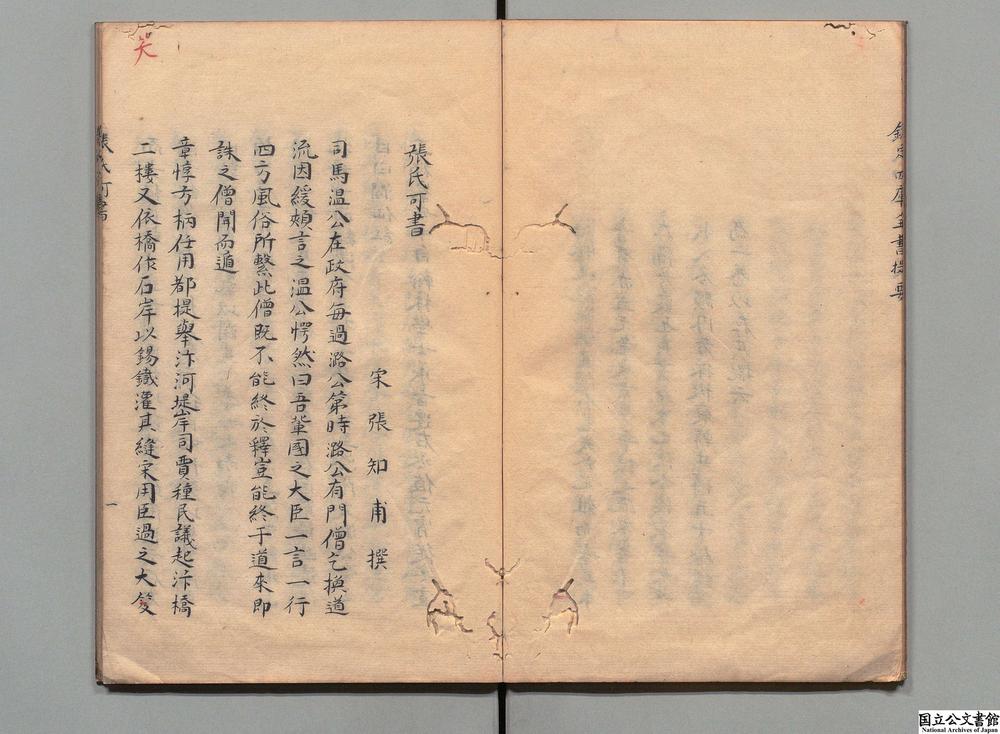 欽定四庫全書提要
張氏可書
宋張知甫撰
司馬溫公在政府每過潞公第時潞公有門僧乞換道
流因緩頰言之溫公愕然曰吾輩國之大臣一言一行
四方風俗所繫此僧旣不能終於釋豈能終于道來即
誅之僧聞而遁
章惇方柄任用都提舉汴河堤岸司賈種民議起汴橋
二樓又依橋作石岸以錫鐵灌其縫宋用臣過之大笑
張氏可書
一
国立公文書館
National Archives of Japan